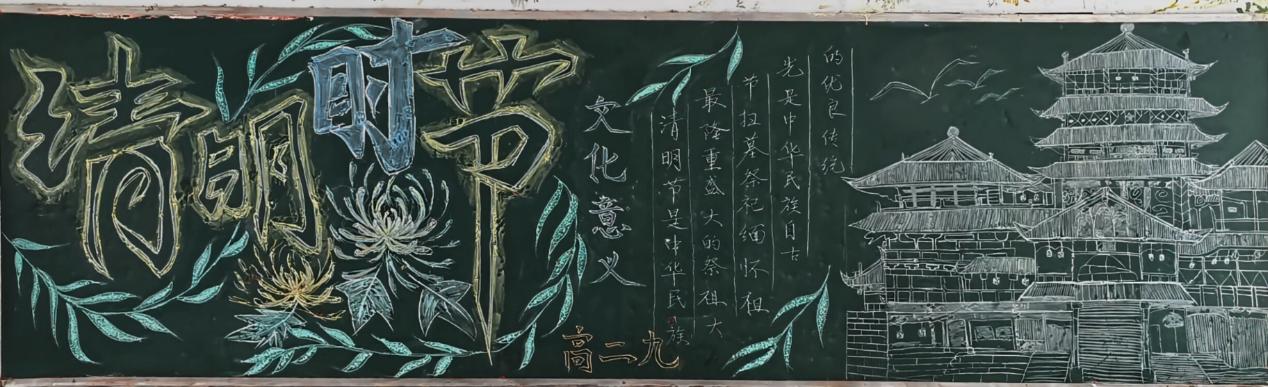 清明时节
文化意义
清明节是中华民族
最隆重盛大的祭祖大
节扫墓祭祀缅怀祖
先是中华民族自古
的优良传统
高二九